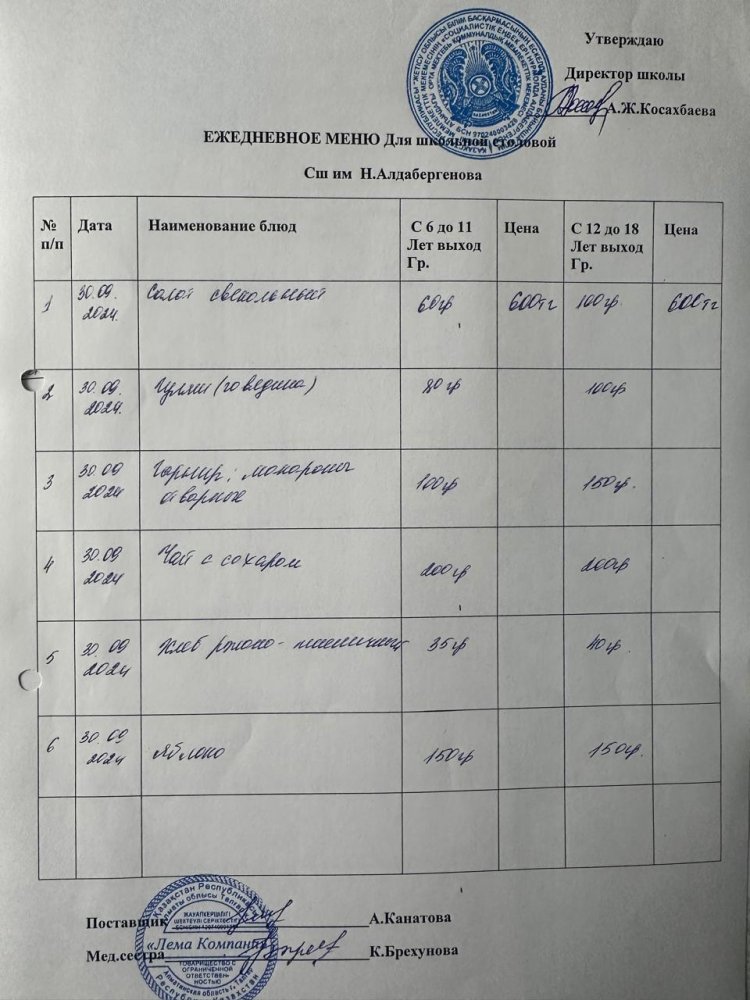 Утверждаю
Директор школы
А.Ж.Косахбаева
ЕЖЕДНЕВНОЕ МЕНЮ Для школьной столовой
Сш им Н.Алдабергенова
№ п/п Дата Наименование блюд С 6 до 11 Лет выход Гр. Цена С 12 до 18 Лет выход Гр. Цена
1 30.09. 2024. Салат свекольный 60гр 600тг 100гр 600тг
2 30.09. 2024. Гуляш (говедина) 80гр 100гр
3 30.09 2024 Гарнир; макароны отварные 100гр 150гр.
4 30.09 2024 Чай с сахаром 200гр 200гр
5 30.09 2024 Хлеб ржано-пшеничный 35гр 40гр.
6 30.09 2024 Яблоко 150гр 150гр.
Қазақстан Республикасы
ЖАУАПКЕРШІЛІГІ
ШЕКТЕУЛІ СЕРІКТЕСТІК
Поставщик А.Канатова
«Лема Компани»
Мед.сестра К.Брехунова
ТОВАРИЩЕСТВО С
ОГРАНИЧЕННОЙ
ОТВЕТСТВЕН-
НОСТЬЮ